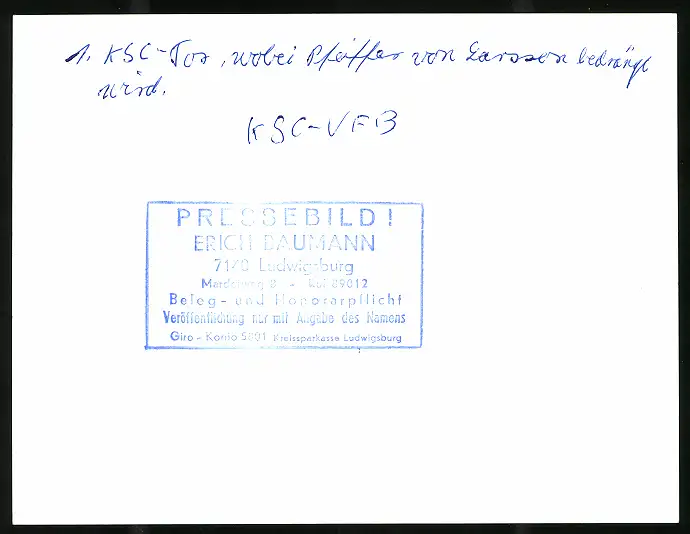 1. KSC-Tor, wobei Pfeiffer von Larsson bedrängt
wird.
KSC-VFB
PRESSEBILD!
ERICH BAUMANN
7140 Ludwigsburg
8 - Ruf 89012
Beleg- und Honorarpflicht
Veröffentlichung nur mit Angabe des Namens
Giro-Konto 5801 Kreissparkasse Ludwigsburg